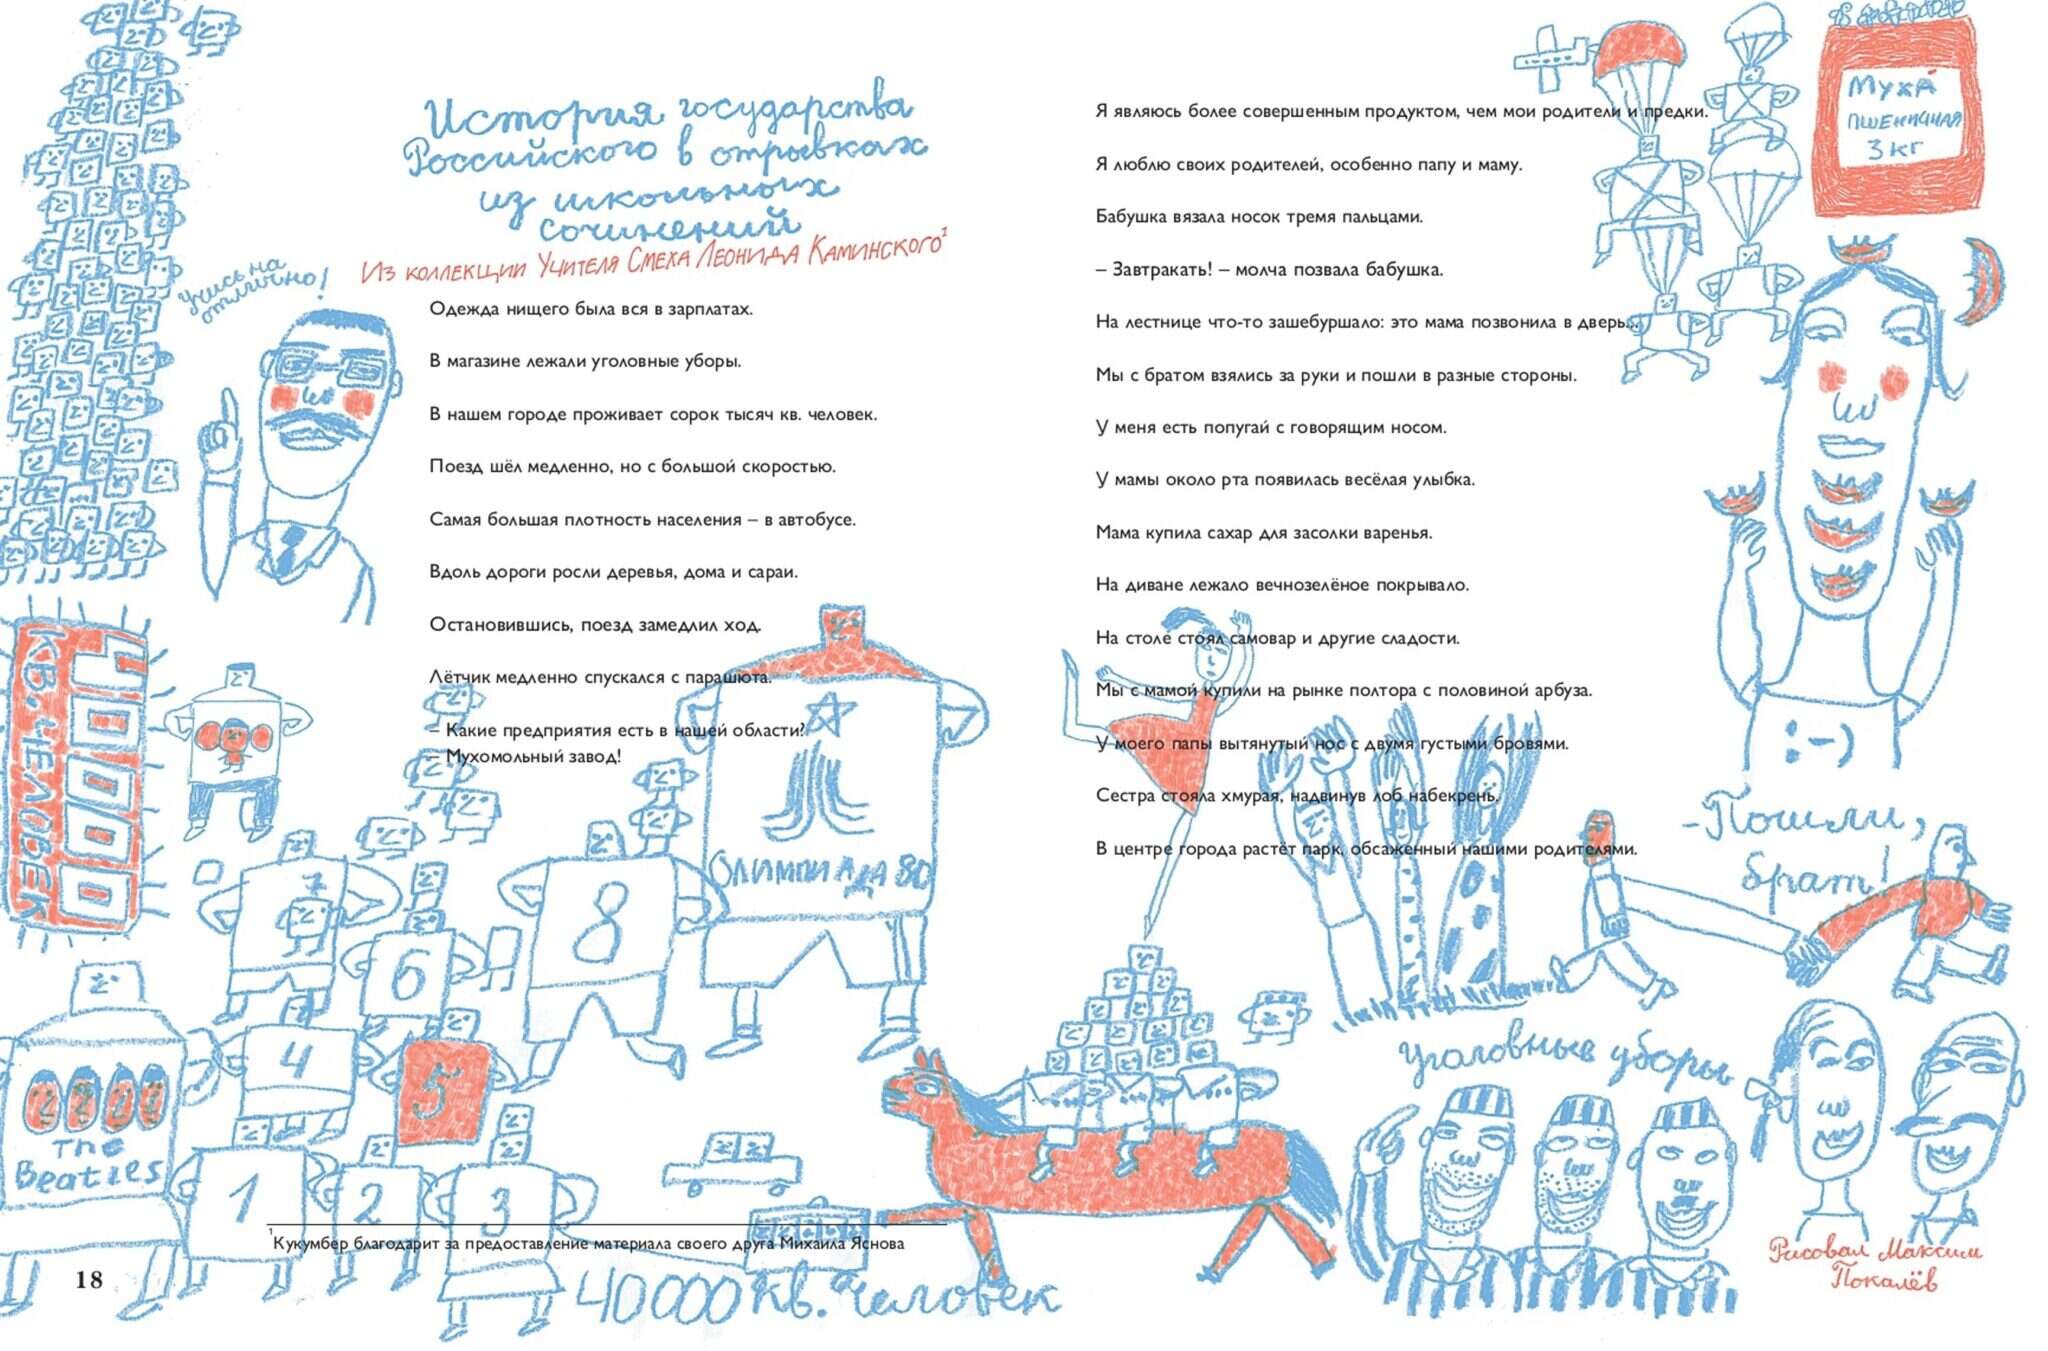 История государства
Российского в отрывках
из школьных
сочинений
Из коллекции Учителя Смеха Леонида Каминского¹
Учись на
отлично!
Одежда нищего была вся в зарплатах.
В магазине лежали уголовные уборы.
В нашем городе проживает сорок тысяч кв. человек.
Поезд шёл медленно, но с большой скоростью.
Самая большая плотность населения – в автобусе.
Вдоль дороги росли деревья, дома и сараи.
Остановившись, поезд замедлил ход.
Лётчик медленно спускался с парашюта.
– Какие предприятия есть в нашей области?
– Мухомольный завод!
40000
КВ. ЧЕЛОВЕК
ОЛИМПИАДА 80
7
8
6
4
5
The
Beatles
1
2
3
¹Кукумбер благодарит за предоставление материала своего друга Михаила Яснова
18
40000 кв. человек
Я являюсь более совершенным продуктом, чем мои родители и предки.
Я люблю своих родителей, особенно папу и маму.
Бабушка вязала носок тремя пальцами.
– Завтракать! – молча позвала бабушка.
На лестнице что-то зашебуршало: это мама позвонила в дверь...
Мы с братом взялись за руки и пошли в разные стороны.
У меня есть попугай с говорящим носом.
У мамы около рта появилась весёлая улыбка.
Мама купила сахар для засолки варенья.
На диване лежало вечнозелёное покрывало.
На столе стоял самовар и другие сладости.
Мы с мамой купили на рынке полтора с половиной арбуза.
У моего папы вытянутый нос с двумя густыми бровями.
Сестра стояла хмурая, надвинув лоб набекрень.
В центре города растёт парк, обсаженный нашими родителями.
МУХА
ПШЕНИЧНАЯ
3 КГ
:-)
-Пошли,
брат!
уголовные уборы
Рисовал Максим
Покалёв